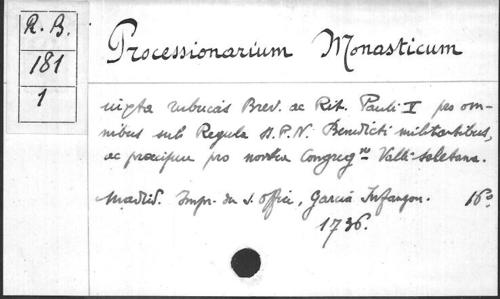 R. B.
181
1
Processionarium Monasticum
iuxta rubricas Brev. ac Rit. Pauli V pro om-
nibus sub Regula S.P.N. Benedicti militantibus,
ac praecipue pro nostra Congreg.ne Valli-soletana.
Madrid. Impr. du S. Office, García Infançon. 16º
1736.